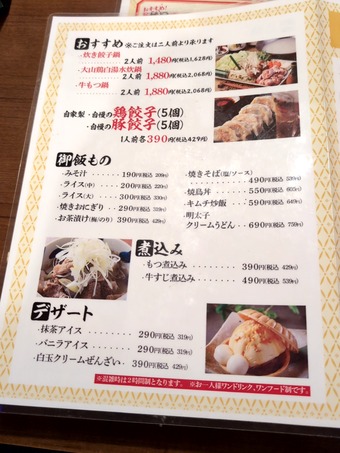 おすすめ ※ご注文は二人前より承ります
・炊き餃子鍋
2人前 1,480円(税込1,628円)
・大山鶏白湯水炊鍋
2人前 1,880円(税込2,068円)
・牛もつ鍋
2人前 1,880円(税込2,068円)
自家製・自慢の鶏餃子(5個)
・自慢の豚餃子(5個)
1人前各390円(税込429円)
御飯もの
・みそ汁 ・・・・・・ 190円(税込 209円)
・ライス(中) ・・・・・ 200円(税込 220円)
・ライス(大) ・・・・・ 300円(税込 330円)
・焼きおにぎり ・・ 290円(税込 319円)
・お茶漬け(梅/のり) ・・ 390円(税込 429円)
・焼きそば(塩/ソース)
・・・・・・・・ 490円(税込 539円)
・焼鳥丼 ・・・・・ 550円(税込 605円)
・キムチ炒飯 ・・ 590円(税込 649円)
・明太子
クリームうどん ・・ 690円(税込 759円)
煮込み
・もつ煮込み ・・・・・・ 390円(税込 429円)
・牛すじ煮込み ・・・・ 490円(税込 539円)
デザート
・抹茶アイス ・・・・・・・・ 290円(税込 319円)
・バニラアイス ・・・・・・ 290円(税込 319円)
・白玉クリームぜんざい ・・ 390円(税込 429円)
※混雑時は2時間制となります。 ※お一人様ワンドリンク、ワンフード制です。